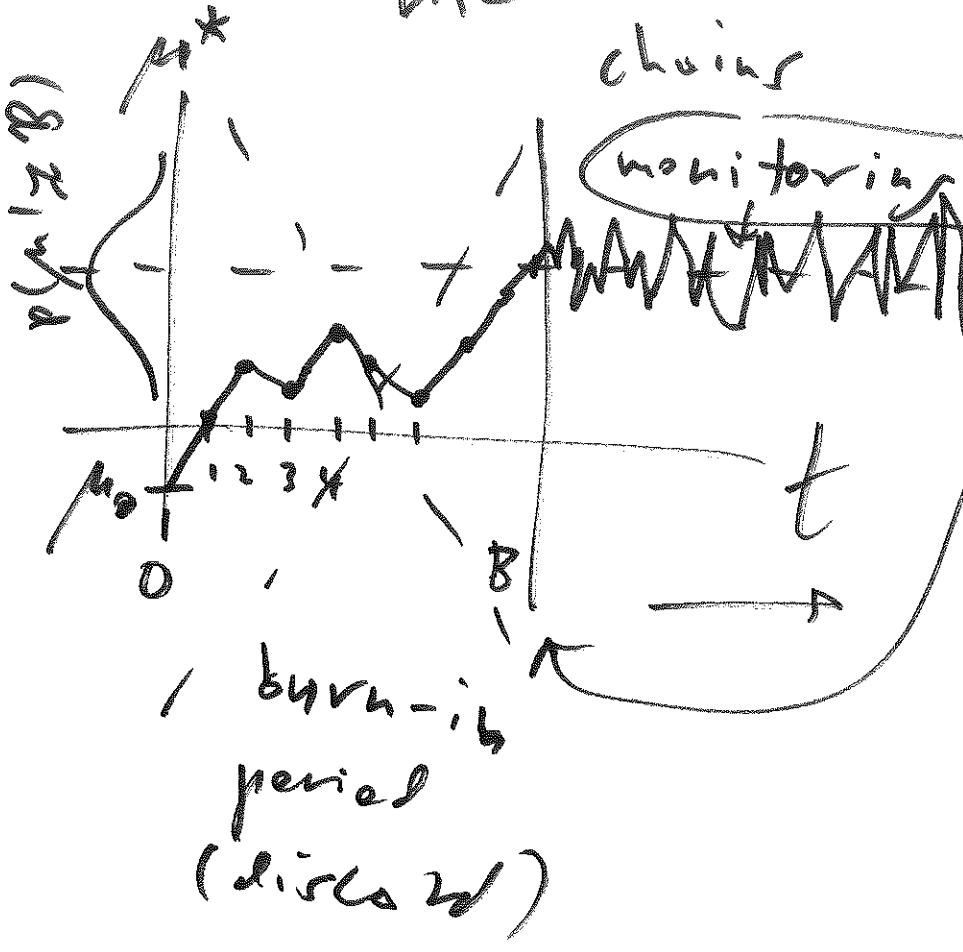 μ*
chains
monitoring
p(μ|y &)
μ₀
1 2 3 4
t
0
B
burn-in
period
(discard)